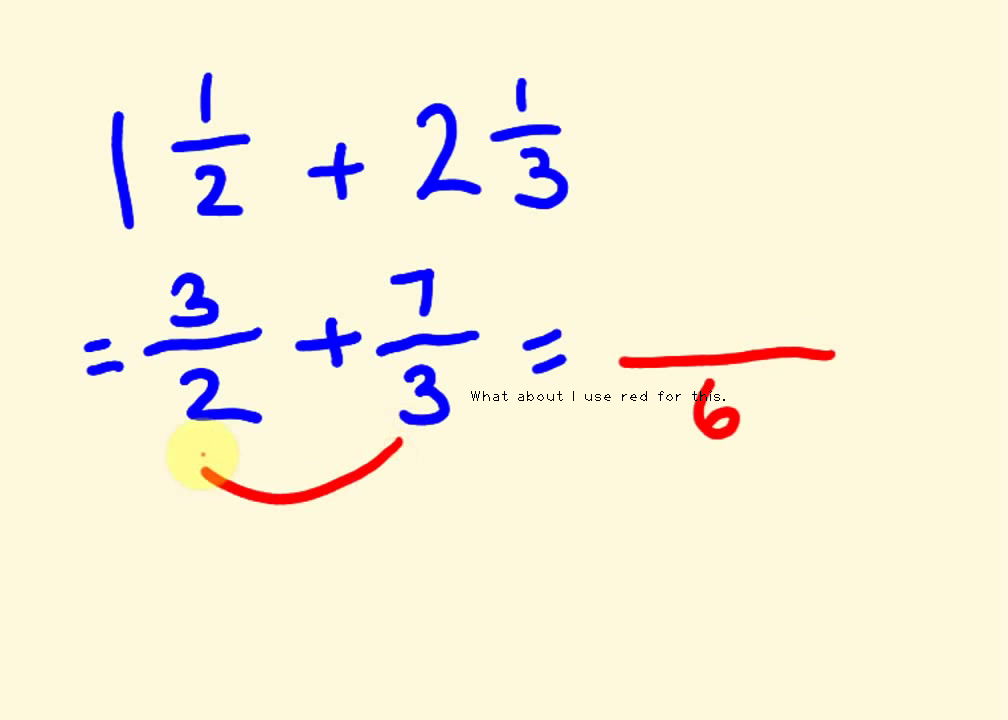 1 1/2 + 2 1/3
= 3/2 + 7/3 = /6
What about I use red for this.